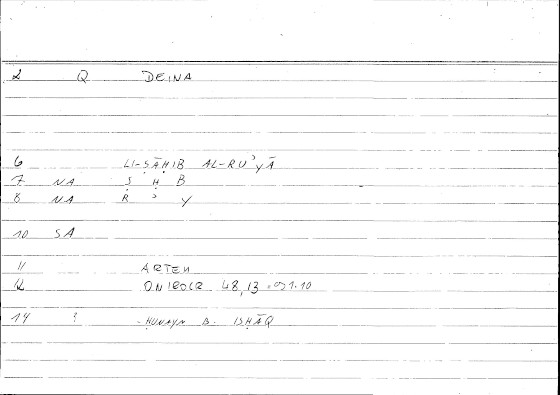 2 Q DEINA
6 LI-ṢĀḤIB AL-RUʾYĀ
7 NA Ṣ Ḥ B
8 NA R ʾ Y
10 SA
11 ARTEM
12 ONIROCR 48,13
14 ? ḤUNAYN B. ISḤĀQ